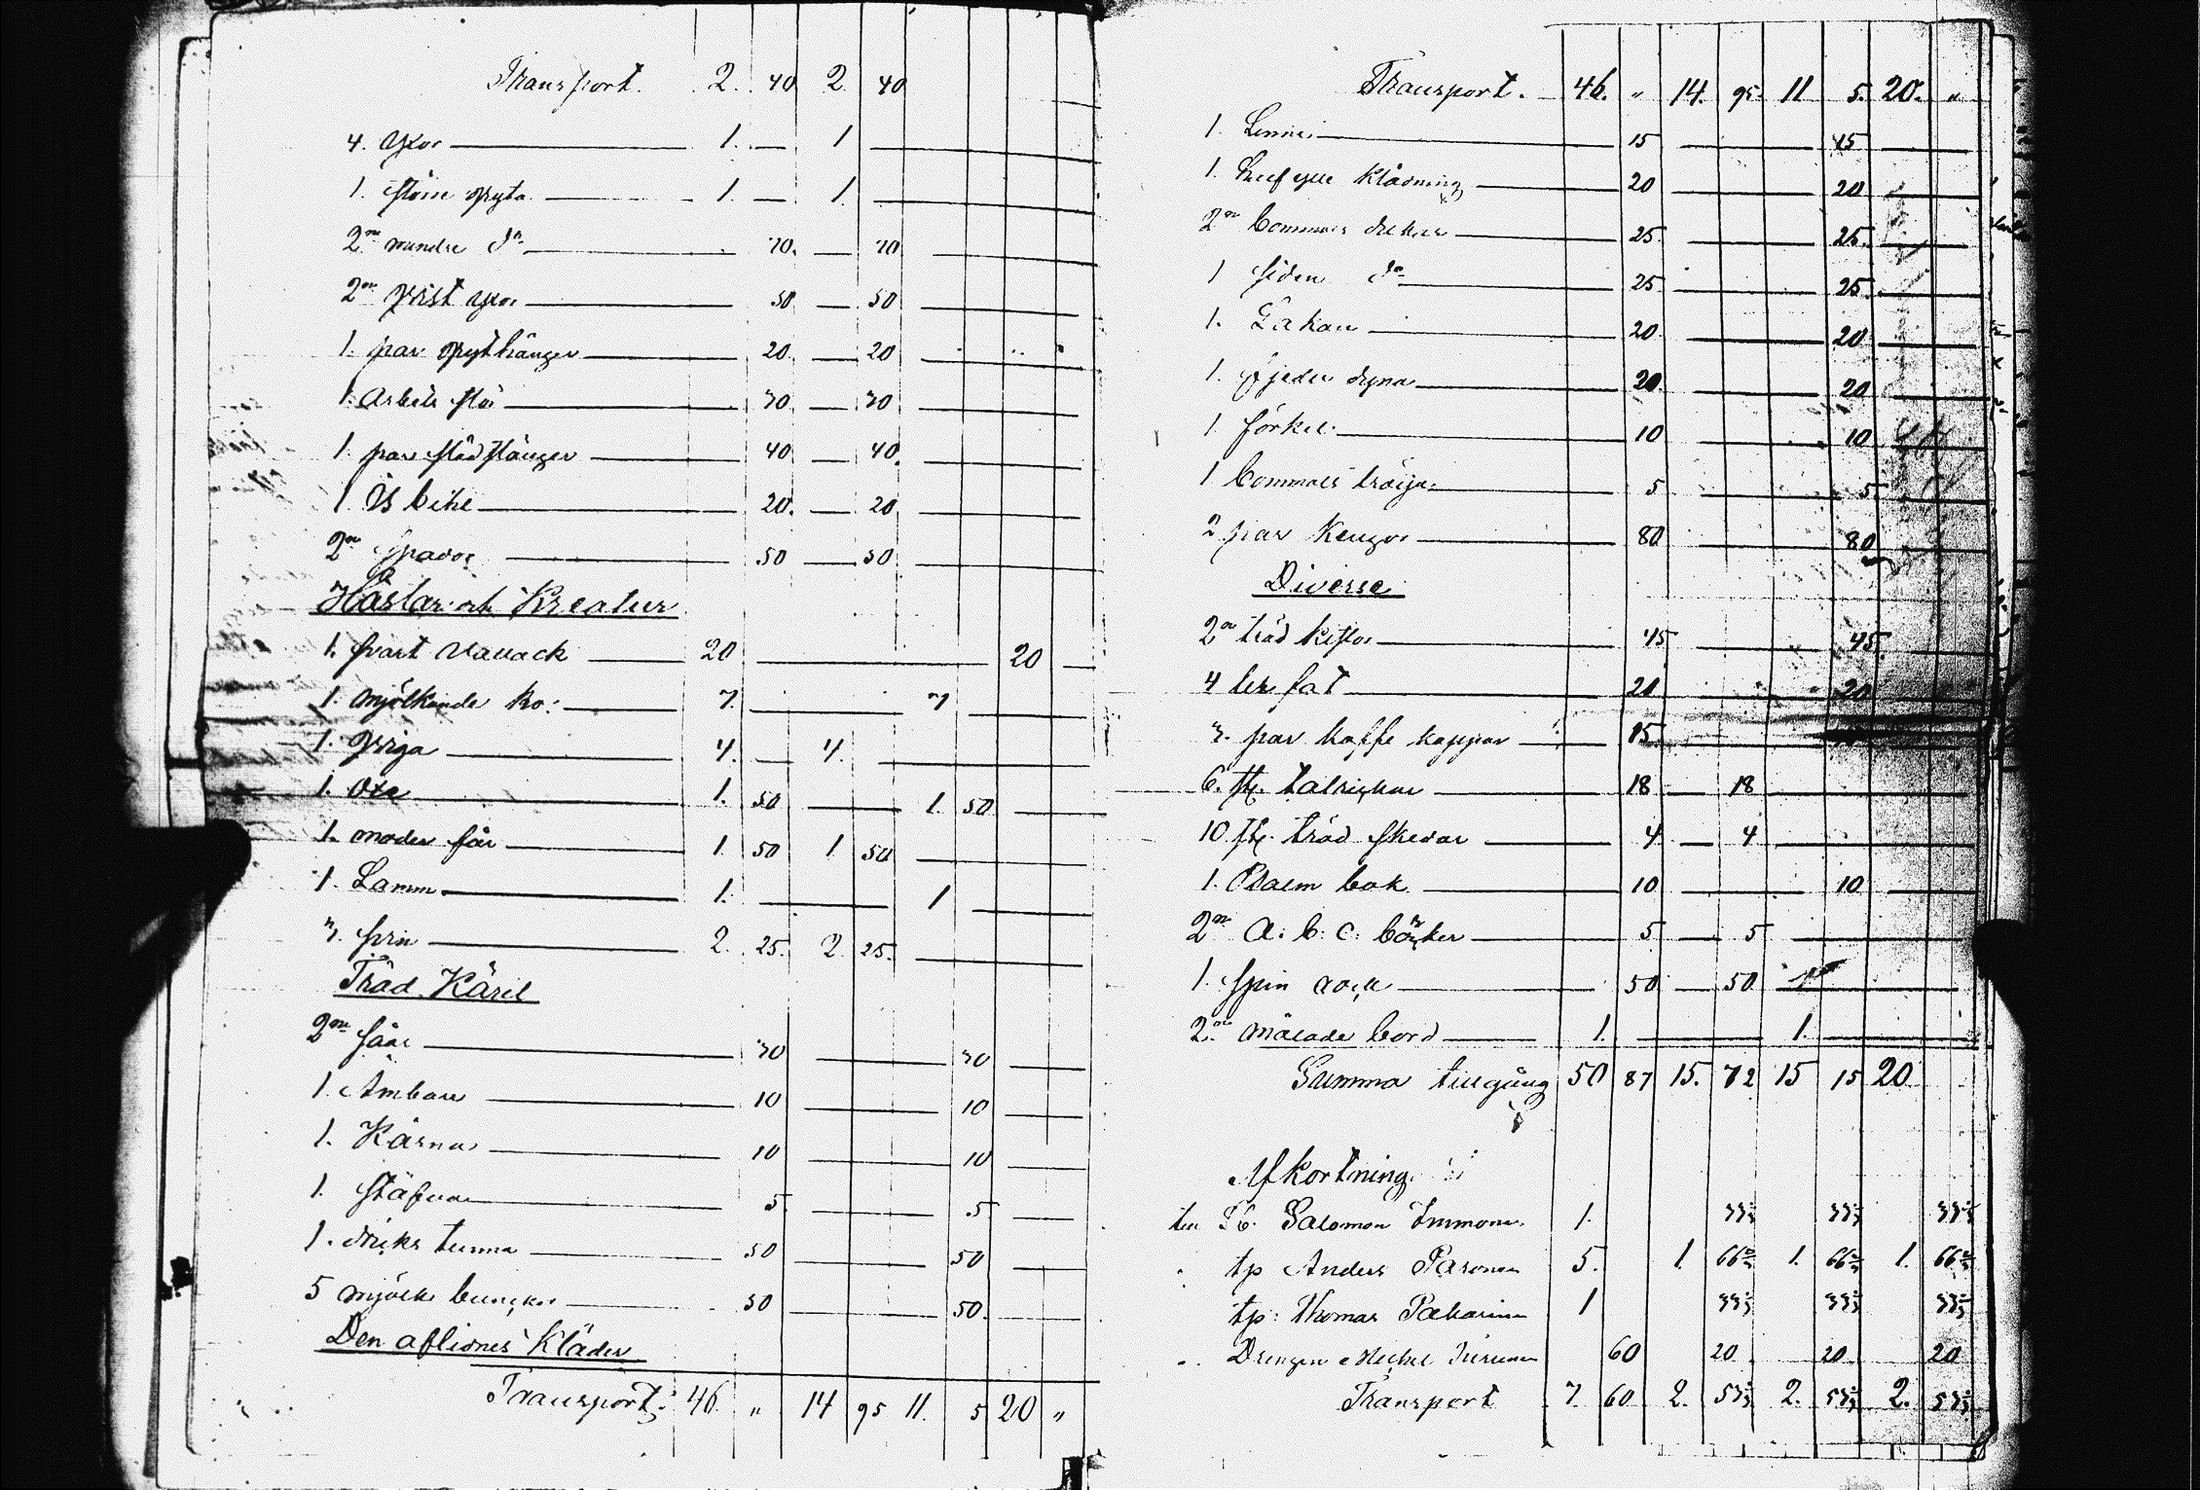 Transport. 2. 40 2 40
4. Yxor 1. 1
1. störe gryta 1. 1.
2ne mindre do 70. 70
2ne Brist yxor 50 50
1. par grythänger 20. 20
1. Arbets slä 70. 70
1. par städstänger 40 40.
1. Is bihl 20. 20
2ne spador 50 50
Hästar och Kreatur
1. svart Vallack 20 20
1. mjölkande ko. 7. 7
1. Qviga 4. 4.
1. Oxe 1. 50 1. 50
1. moder får 1. 50 1. 50
1. Lamm 1. 1
3. svin 2. 25. 2. 25.
Träd Käril
2ne såar 30 30
1. Ämbare 10 10
1. Kärna 10 10
1. stäfva 5 5
1. dricks tunna 50 50
5 mjölk bunckar 50 50.
Den aflidnes Kläder
Transport. 46. " 14 95 11. 5 20 "
Transport. 46. " 14. 95. 11 5. 20. "
1. 15 45
1. ylle Klädning 20 20
2ne Bommuls dukar 25. 25.
1 siden do 25 25.
1. Lakan 20 20
1. fjeder dyna 20. 20
1 förkle. 10 10
1 Bommuls tröja. 5 5
2 par Kengor 80 80
Diverse
2ne träd kistor 45 45
4 ler fat 20 20
3. par kaffe koppar 15.
6. st. talrickar 18 18
10. st. träd skedar 4 4
1. Psalm bok 10 10
2ne A. b. c. böcker 5 5
1. spin rock 50 50
2ne målade bord 1. 1.
Summa tillgång 50 87 15. 72 15 15 20
Afkortning.
till Tb. Salomon Immonen 1. 33⅓ 33⅓ 33⅓
" tp Anders Pasonen 5. 1 66⅔ 1. 66⅔ 1. 66⅔
tp. Thomas Pakarinen 1 33⅓ 33⅓ 33⅓
" Drengen Michel 60 20. 20 20
Transport 7. 60 2. 53⅓ 2. 53⅓ 2. 53⅓